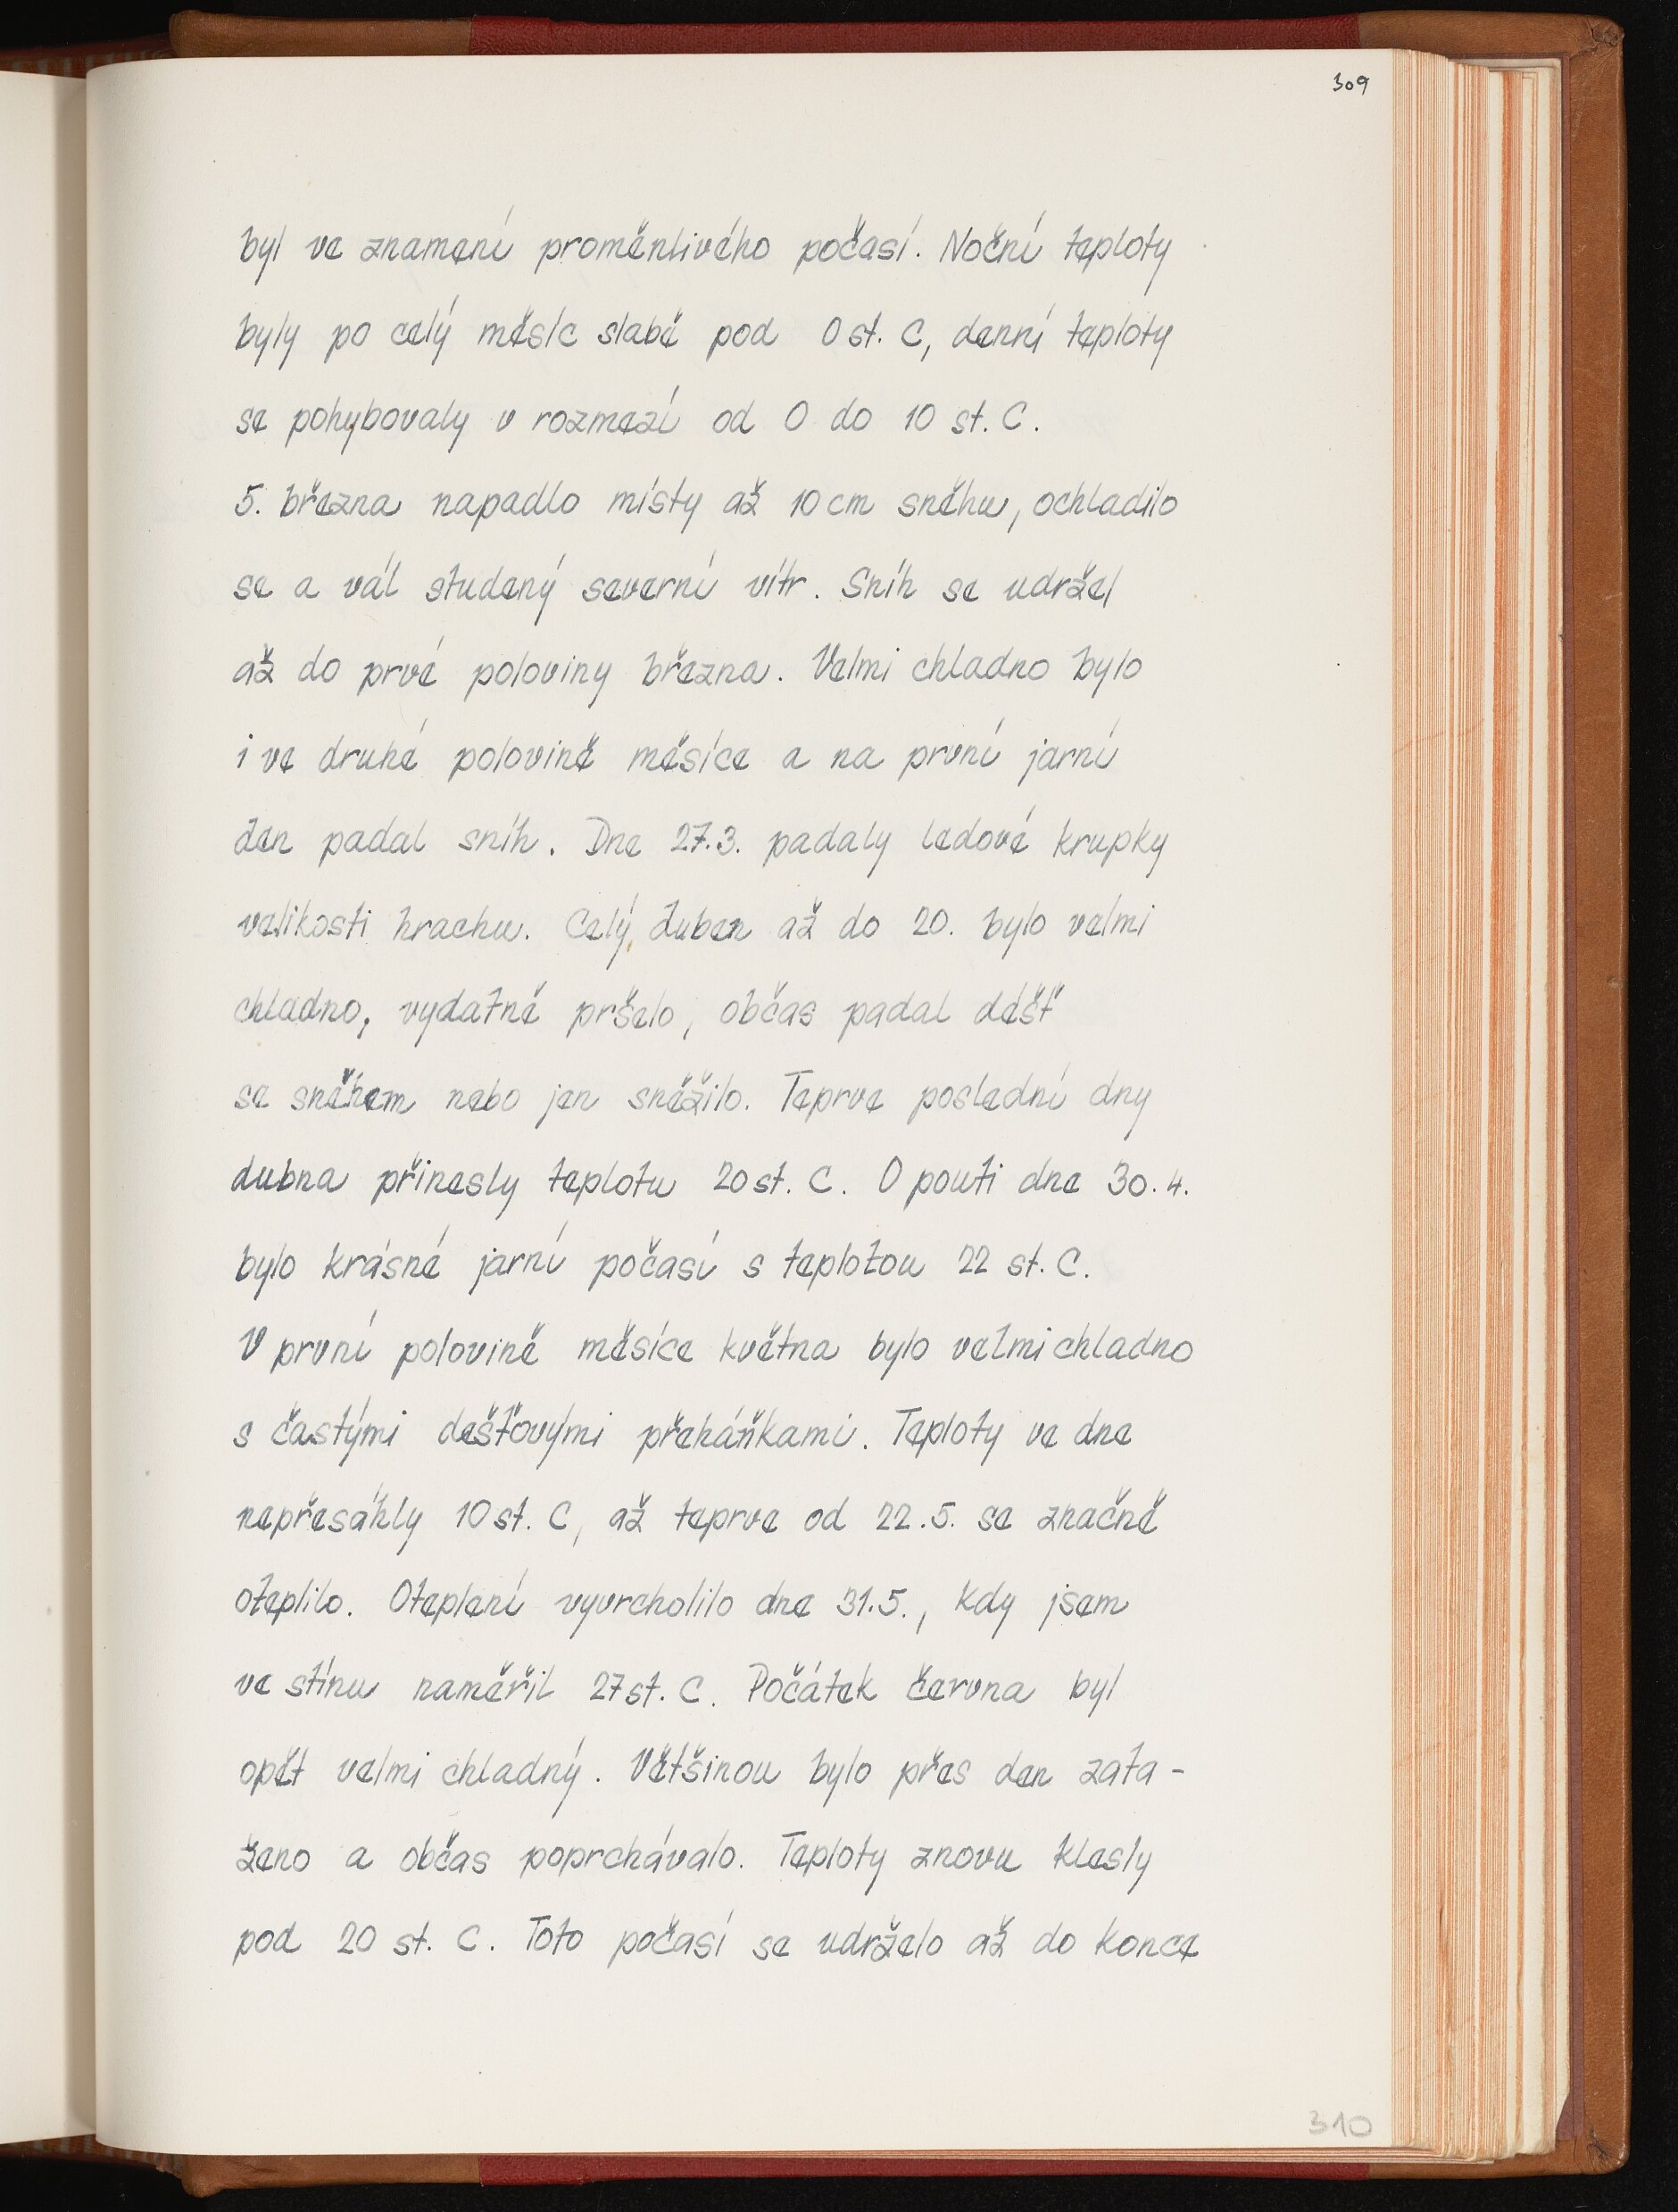 309
byl ve znamení proměnlivého počasí. Noční teploty
byly po celý měsíc slabě pod 0 st. C, denní teploty
se pohybovaly v rozmezí od 0 do 10 st. C.
5. března napadlo místy až 10 cm sněhu, ochladilo
se a vál studený severní vítr. Sníh se udržel
až do prvé poloviny března. Velmi chladno bylo
i ve druhé polovině měsíce a na první jarní
den padal sníh. Dne 27.3. padaly ledové krupky
velikosti hrachu. Celý duben až do 20. bylo velmi
chladno, vydatně pršelo, občas padal déšť
se sněhem nebo jen sněžilo. Teprve poslední dny
dubna přinesly teplotu 20 st. C. O pouti dne 30.4.
bylo krásné jarní počasí s teplotou 22 st. C.
V první polovině měsíce května bylo velmi chladno
s častými dešťovými přeháňkami. Teploty ve dne
nepřesáhly 10 st. C, až teprve od 22.5. se značně
oteplilo. Oteplení vyvrcholilo dne 31.5., kdy jsem
ve stínu naměřil 27 st. C. Počátek června byl
opět velmi chladný. Většinou bylo přes den zata-
ženo a občas poprchávalo. Teploty znovu klesly
pod 20 st. C. Toto počasí se udrželo až do konce
310